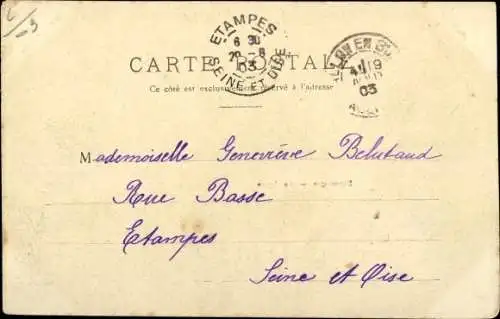 ETAMPES
6 30
20 - 8
03
SEINE ET OISE
EN
19
03
CARTE POSTALE
Ce côté est exclusivement réservé à l'adresse
Mademoiselle Geneviève Belutaud
Rue Basse
Etampes
Seine et Oise